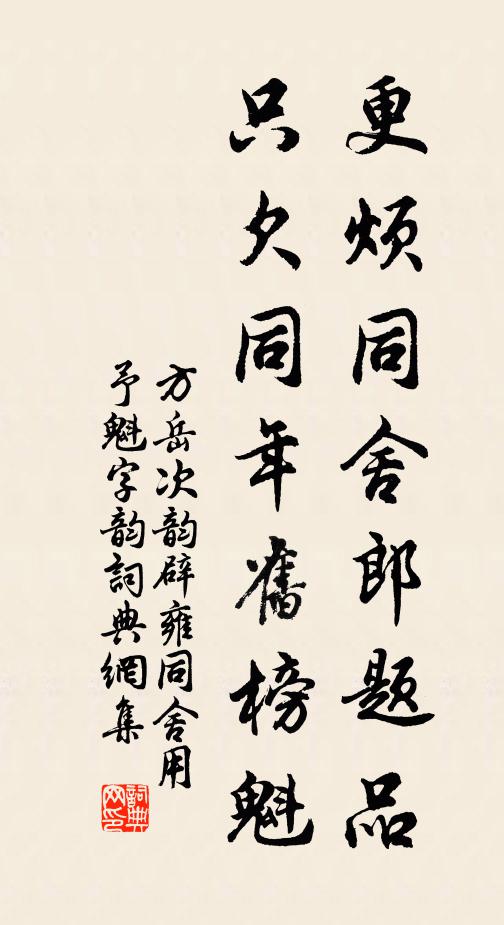 更烦同舍郎题品
只欠同年舊榜魁
方岳次韵辟雍同舍用
予魁字韵詞典網集
詞典网印